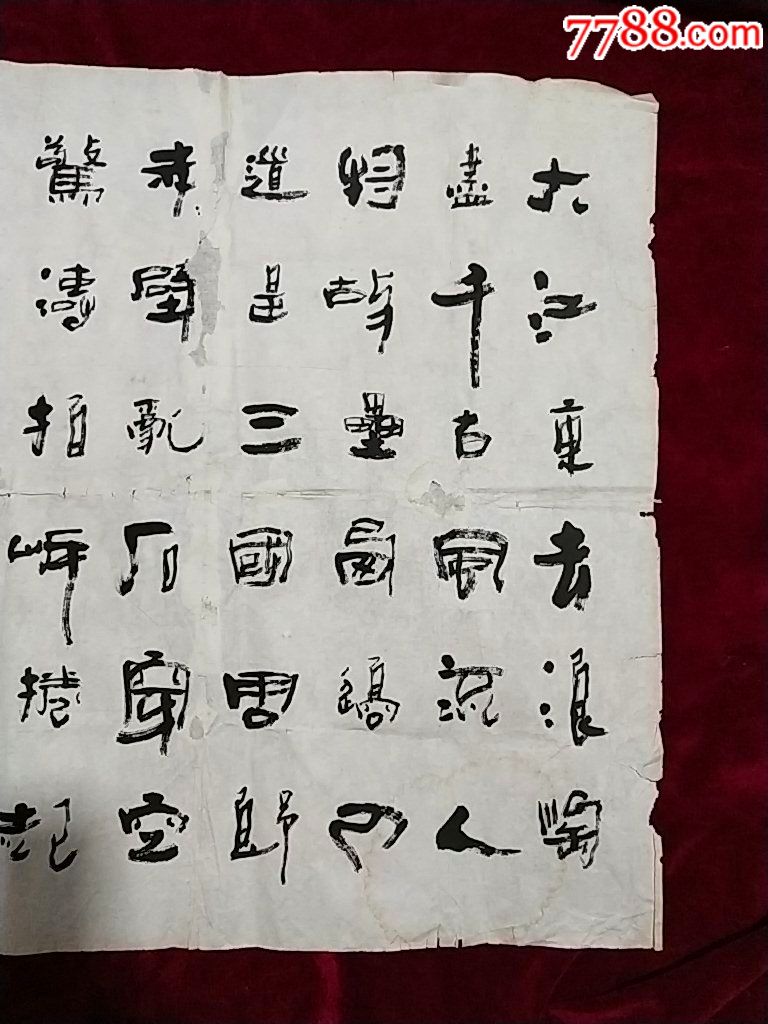 7788.com
大江東去浪淘
盡千古風流人
物故壘西邊人
道是三國周郎
赤壁亂石穿空
驚濤拍岸捲起